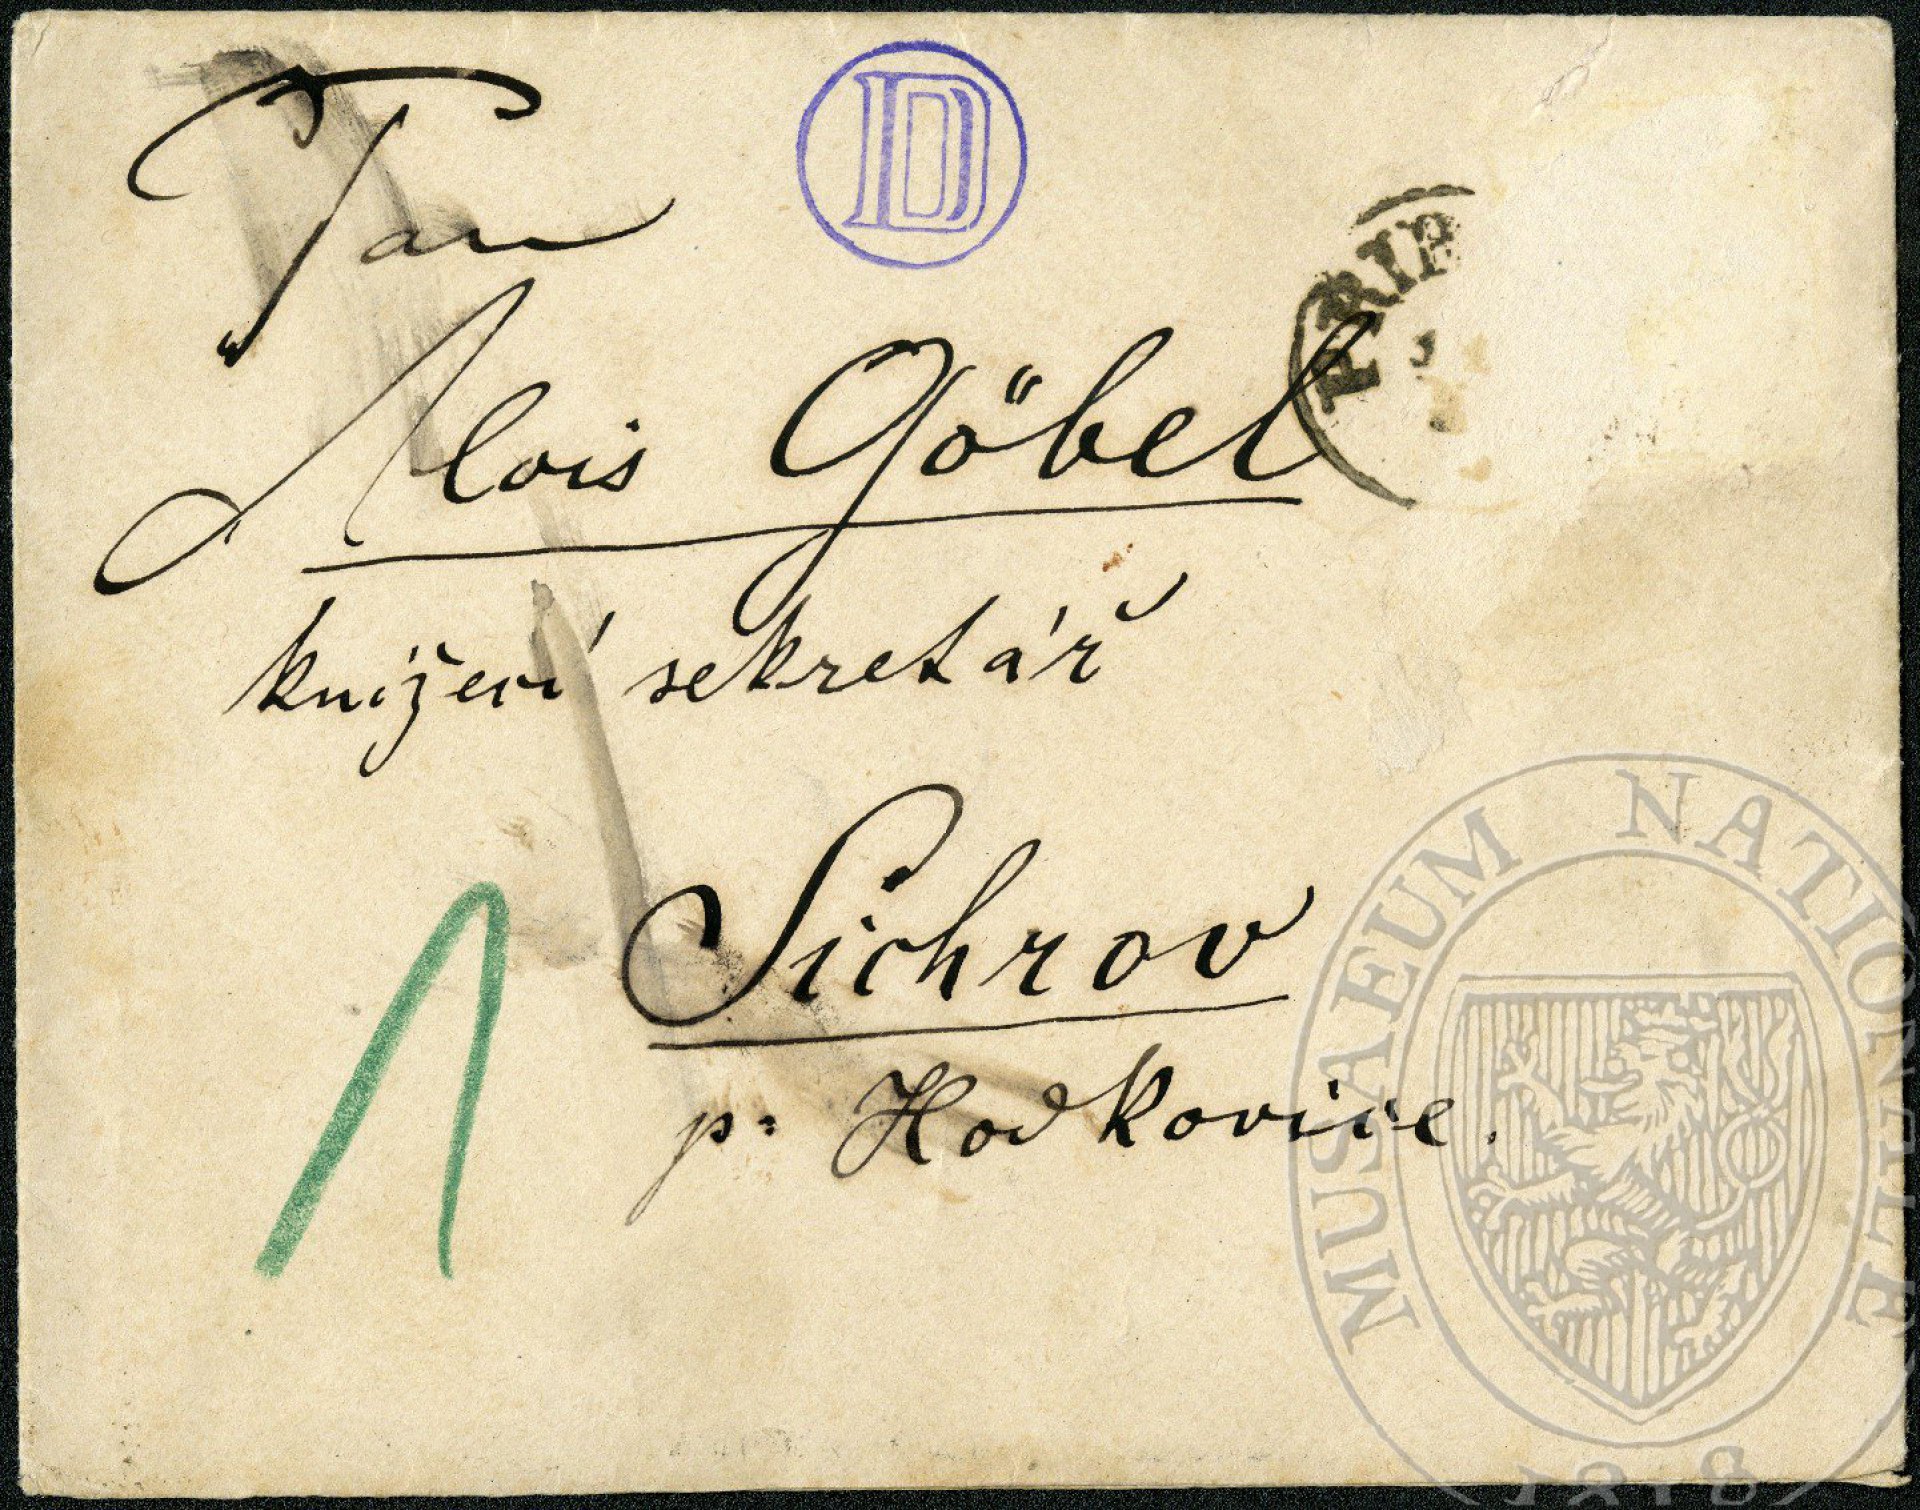 D
Pan
Alois Göbel
knížecí sekretář
Sichrov
p: Hodkovice.
1
MUSAEUM NATIONALE
1818